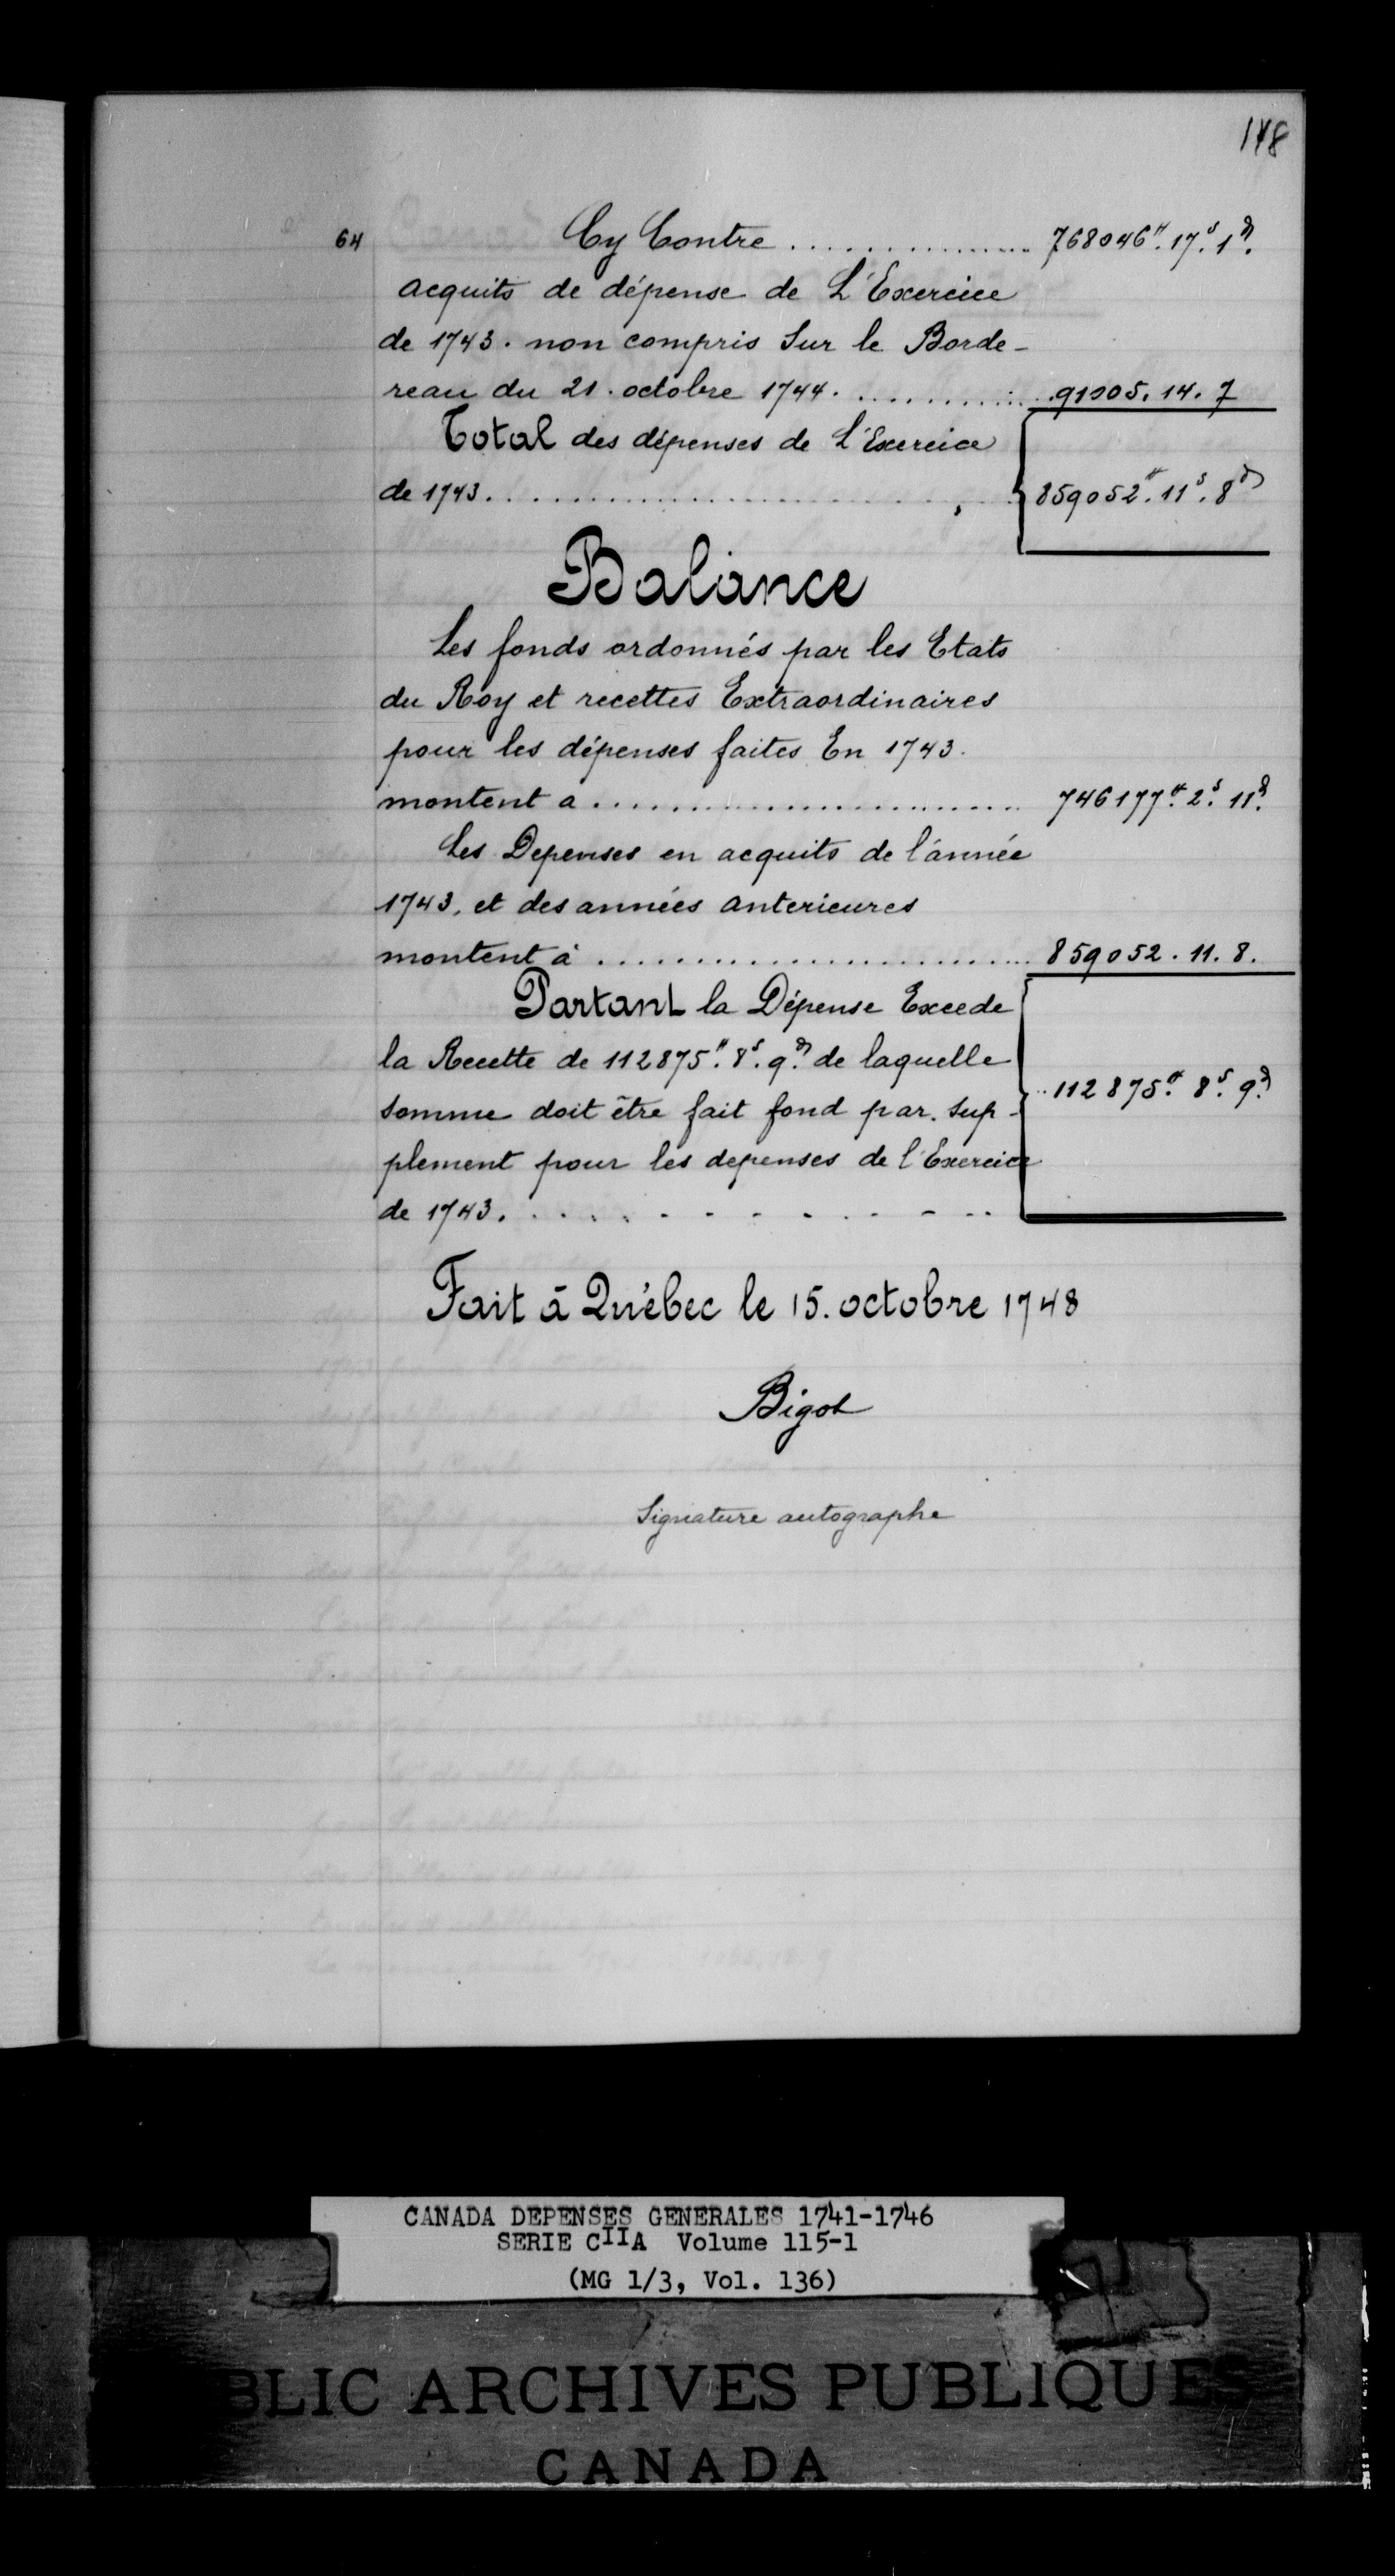 118
64 Cy Contre ................ 768046ᵗᵗ. 17ˢ. 1ᵈ.
acquits de dépense de L'Exercice
de 1743. non compris Sur le Borde-
reau du 21. octobre 1744. ............ 91005. 14. 7
Total des dépenses de L'Exercice
de 1743. ........................ 859052ᵗᵗ. 11ˢ. 8ᵈ
Balance
Les fonds ordonnés par les Etats
du Roy et recettes Extraordinaires
pour les dépenses faites En 1743.
montent a ........................ 746177ᵗᵗ. 2ˢ. 11ᵈ.
Les Depenses en acquits de l'année
1743, et des années anterieures
montent à ........................ 859052. 11. 8.
Partant la Dépense Excede
la Recette de 112875ᵗᵗ. 8ˢ. 9ᵈ. de laquelle
somme doit être fait fond par. Sup- ..112875ᵗᵗ. 8ˢ. 9ᵈ.
plement pour les depenses de l'Exercice
de 1743. . . . . . . . . . . . . .
Fait à Québec le 15. octobre 1748
Bigot
Signature autographe
CANADA DEPENSES GENERALES 1741-1746
SERIE CIIA Volume 115-1
(MG 1/3, Vol. 136)
BLIC ARCHIVES PUBLIQUES
CANADA